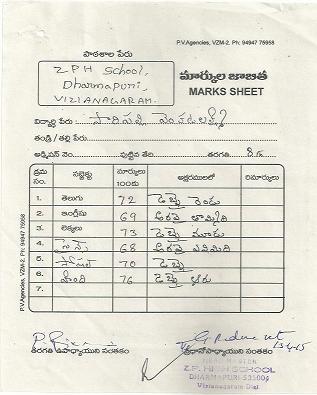 P.V.Agencies, VZM-2. Ph: 94947 75958
పాఠశాల పేరు
Z P H School,
Dharmapuri,
VIZIANAGARAM.
మార్కుల జాబితా
MARKS SHEET
విద్యార్థి పేరు
తండ్రి / తల్లి పేరు
అడ్మిషన్ నెం. పుట్టిన తేది. తరగతి 8
క్రమ సం. సబ్జెక్టు మార్కులు 100కు అక్షరములలో రిమార్కులు
1. తెలుగు 72 డెబ్బై రెండు
2. ఇంగ్లీషు 69 అరవై తొమ్మిది
3. లెక్కలు 73 డెబ్బై మూడు
4. సైన్స్ 68 అరవై ఎనిమిది
5. సోషల్ 70 డెబ్బై
6. హింది 76 డెబ్బై ఆరు
7.
P.V.Agencies, VZM-2. Ph: 94947 75958
తరగతి ఉపాధ్యాయుని సంతకం ప్రధానోపాధ్యాయుని సంతకం
HEAD MASTER
Z.P. HIGH SCHOOL
DHARMAPURI-535004
Vizianagaram Dist